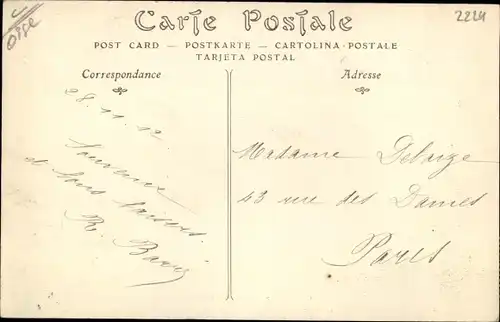 Oise
2224
Carte Postale
POST CARD — POSTKARTE — CARTOLINA-POSTALE
TARJETA POSTAL
Correspondance
28.11.12
Souvenir
et bons baisers
R.
Adresse
Madame Delaize
43 rue des Dames
Paris